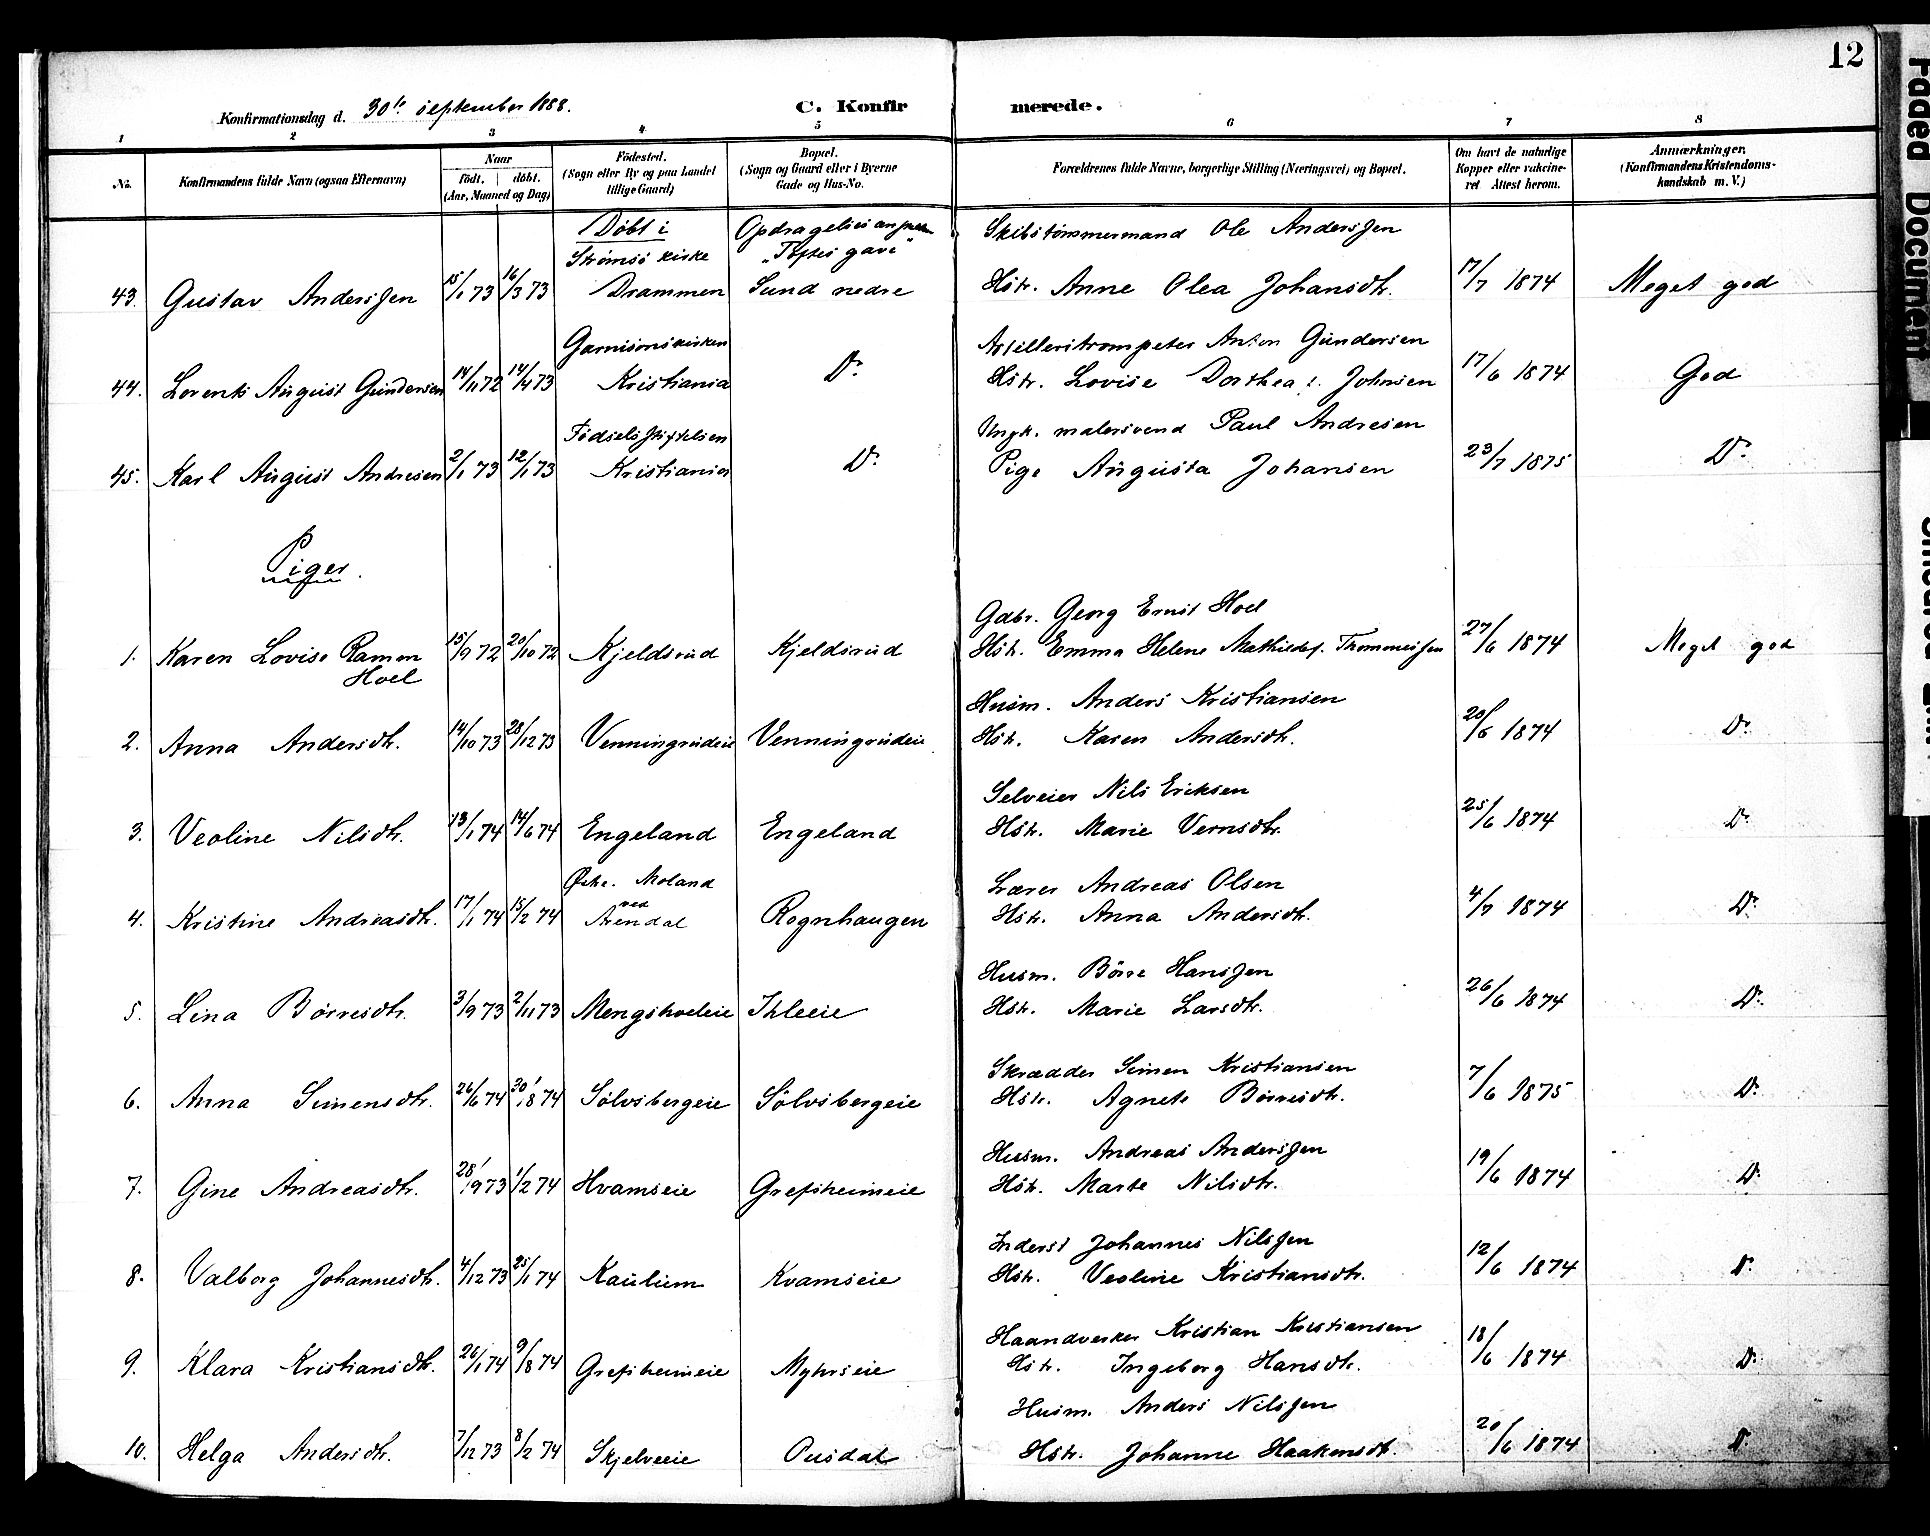 12
Konfirmationsdag d. 30te september 1888.
C. Konfirmerede.
1 2 3 4 5 6 7 8
No. Konfirmandens fulde Navn (ogsaa Efternavn) Naar født, døbt. (Aar, Maaned og Dag) Fødested. (Sogn eller By og paa Landet tillige Gaard) Bopæl. (Sogn og Gaard eller i Byerne Gade og Hus-No. Forældrenes fulde Navne, borgerlige Stilling (Næringsvei) og Bopæl. Om havt de naturlige Kopper eller vakcineret Attest herom. Anmærkninger. (Konfirmandens Kristendomskundskab m. V.)
Døbt i Opdragelsesanst
Strømsø kirke "Toftes gave" Skibstømmermand Ole Anderssen
43. Gustav Anderssen 15/1 73 16/3 73 Drammen Sund nedre Hstr. Anne Olea Johansdtr. 17/7 1874 Meget god
Garnisonskirken Artilleritrompeter Anton Gundersen
44. Lorents August Gundersen 14/11 72 14/4 73 Kristiania Do Hstr. Lovise Dorthea f. Johnsen 17/6 1874 God
Fødselsstiftelsen Ungk. malersvend Paul Andresen
45. Karl August Andresen 2/1 73 12/1 73 Kristiania Do Pige Augusta Johansen 23/7 1875 Do
Piger.
Gdbr. Georg Ernst Hoel
1. Karen Lovise Ramm 15/9 72 20/10 72 Kjeldsrud Kjeldsrud Hstr. Emma Helene Mathilde f. Thommessen 27/6 1874 Meget god
Hoel
Husm. Anders Kristiansen
2. Anna Andersdtr. 14/10 73 28/12 73 Venningrudeie Venningrudeie Hstr. Karen Andersdtr. 20/6 1874 Do
Selveier Nils Ericksen
3. Veoline Nilsdtr. 13/1 74 14/6 74 Engeland Engeland Hstr. Marie Vernsdtr. 25/6 1874 Do
Østre Moland Lærer Andreas Olsen
4. Kristine Andreasdtr. 17/1 74 15/2 74 ved Arendal Rognhaugen Hstr. Anna Andersdtr. 4/7 1874 Do
Husm. Børre Hanssen
5. Lina Børresdtr. 3/9 73 2/11 73 Mengshoeleie Ihleeie Hstr. Marie Larsdtr. 26/6 1874 Do
Skrædder Simen Kristiansen
6. Anna Simensdtr. 26/6 74 30/8 74 Sølvsbergeie Sølvsbergeie Hstr. Agnete Børresdtr. 7/6 1875 Do
Husm. Andreas Anderssen
7. Gine Andreasdtr. 28/9 73 1/2 74 Hvamseie Grefsheimeie Hstr. Marte Nilsdtr. 19/6 1874 Do
Inderst Johannes Nilssen
8. Valborg Johannesdtr. 4/12 73 25/1 74 Kaulum Kvamseie Hstr. Veoline Kristiansdtr. 12/6 1874 Do
Haandverker Kristian Kristiansen
9. Klara Kristiansdtr. 26/1 74 9/8 74 Grefsheimeie Myhrseie Hstr. Ingeborg Hansdtr. 18/6 1874 Do
Husm. Anders Nilssen
10. Helga Andersdtr. 7/12 73 8/2 74 Skjelveeie Ousdal Hstr. Johanne Haakensdt. 20/6 1874 Do
Faded Document